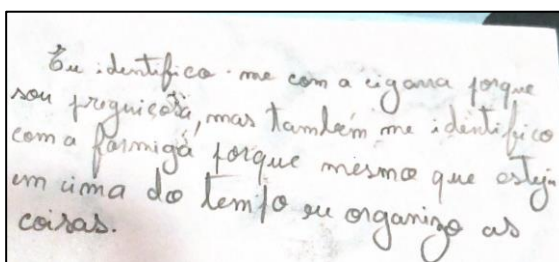 Eu identifica-me com a cigarra porque
sou preguiçosa, mas também me identifico
com a formiga porque mesmo que esteja
em cima do tempo eu organizo as
coisas.